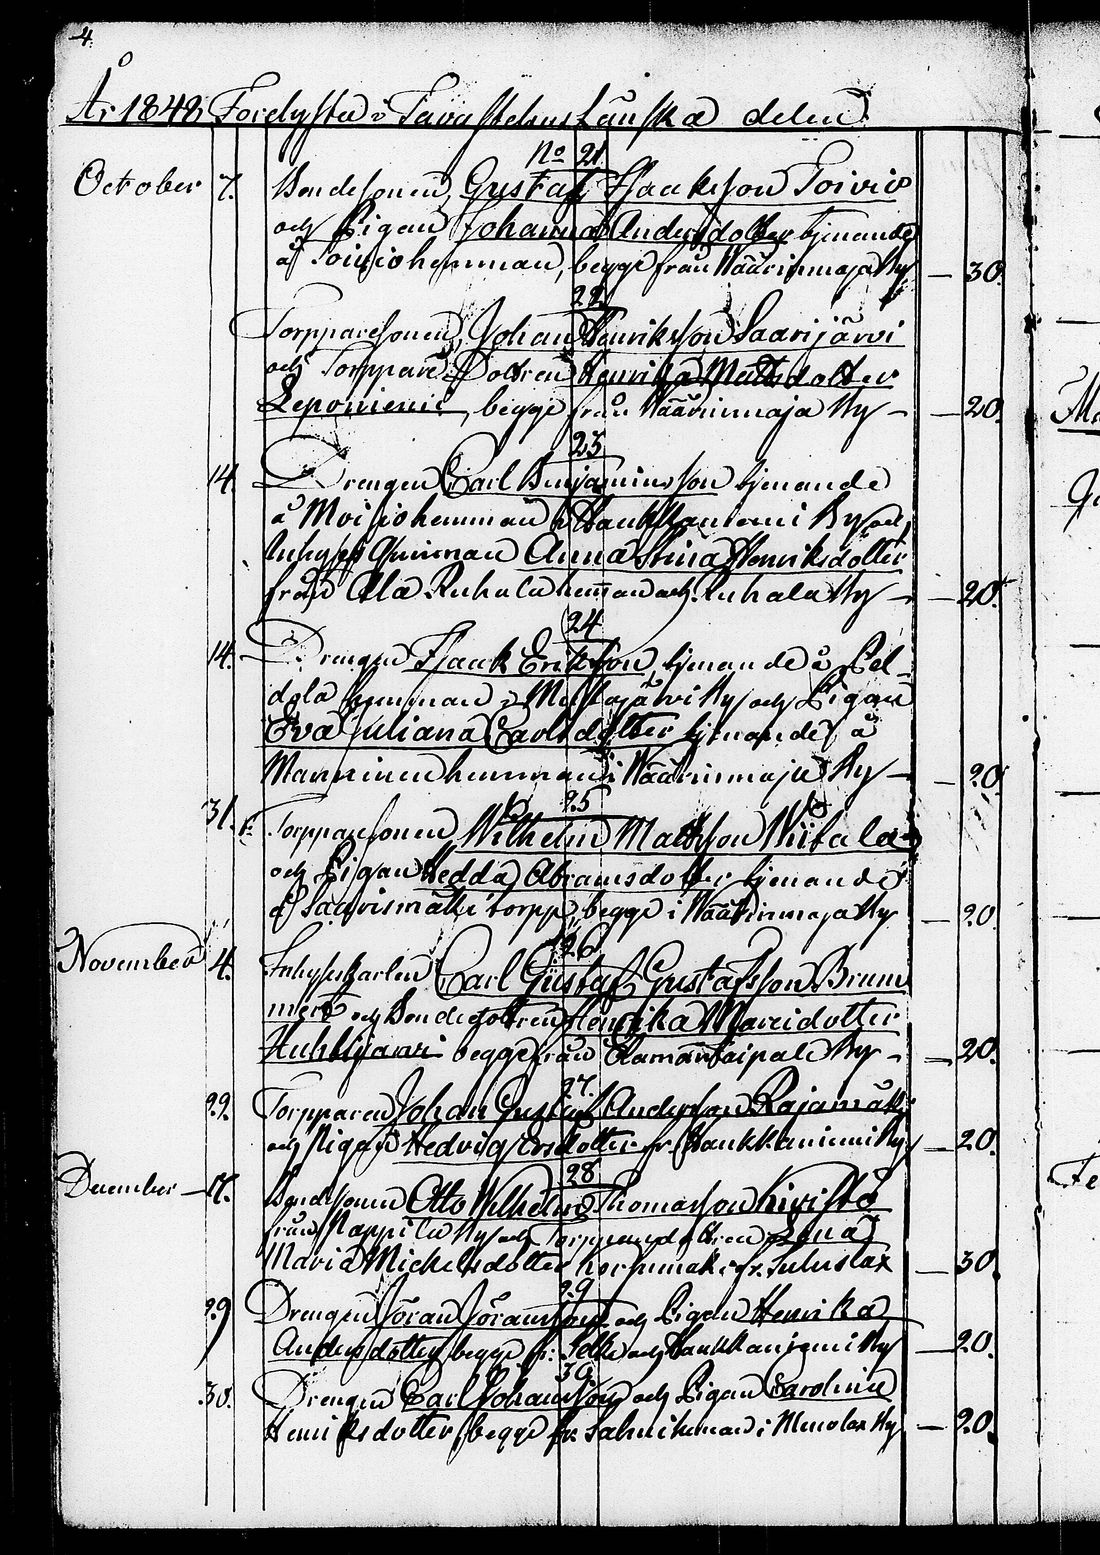 4
År 1848 Forelyste i Tavastehus Länska delen
No 21.
October 7. Bondesonen, Gustaf Isaaksson Toivio
och Pigan Johanna Andersdotter tjenande
å Toivio hemman, begge från Wäärinmaja By — 30.
22.
Torpparesonen, Johan Henriksson Saarijärvi
och Torppare Dottren Henrika Mattsdotter
Leponiemi, begge från Wäärinmaja By — 20.
23
14. Drengen Carl Benjaminsson tjenande
å hemman i Hankkaniemi By och
Inhyses Qvinnan Anna Stina Henriksdotter
från Ala Ruhala hemman och Ruhala By — 20.
24
14. Drengen Isaak Eriksson, tjenande å Pel-
dola hemman i By och Pigan
Eva Juliana Carlsdotter tjenande å
Manninen hemman i Wäärinmaja By — 20.
25
31. Torpparesonen Wilhelm Mattsson Wiitala
och Pigan Hedda Abramsdotter tjenande
å Saarismäki torpp, begge i Wäärinmaja By — 20
26
November 4. Inhyseskarlen Carl Gustaf Gustafsson Brum
mert och Bondedottren Henrika Mareidotter
Huhkijärvi begge från By — 20.
27.
22. Torpparen Johan Gustaf Andersson Rajamäki
och Pigan Hedvig dotter fr. Hankkaniemi By — 20.
28
December — 17. Bondesonen Otto Wilhelm Thomasson Kivistö
från By och Torpparedottren Lena
Maria Mickelsdotter fr. — 30.
29
29 Drengen Jöran Jöransson och Pigan Henrika
Andersdotter begge fr: och Hankkaniemi By — 20.
30
30. Drengen Carl Johansson och Pigan Carolina
Henriksdotter, begge fr. hemman i By — 20.